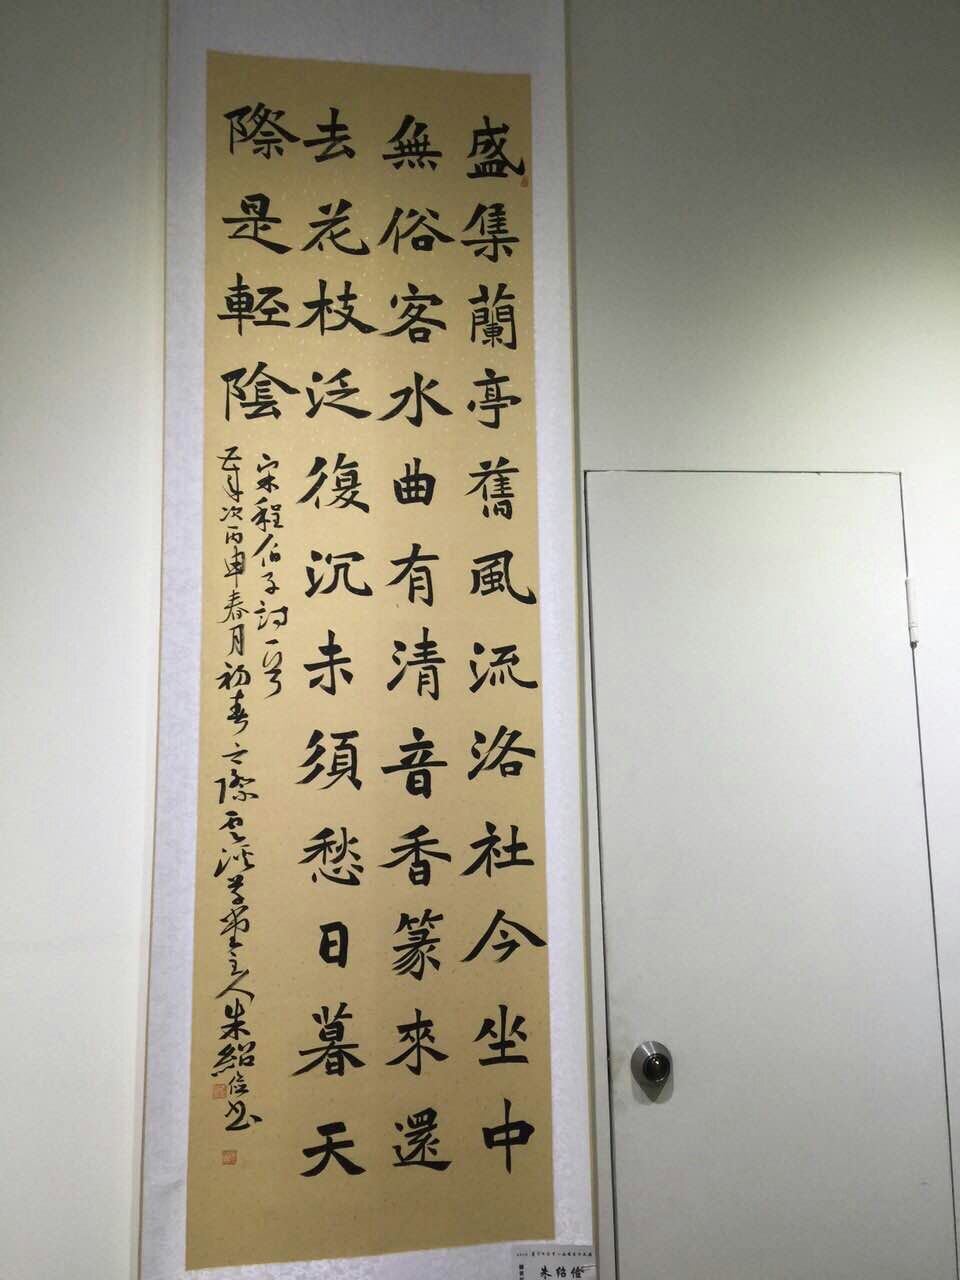 盛集蘭亭舊風流洛社今坐中
無俗客水曲有清音香篆來還
去花枝泛復沉未須愁日暮天
際是輕陰
宋程伯子詩一首
次丙申春月初春之際雲溪草堂主人朱紹俭书
朱绍俭